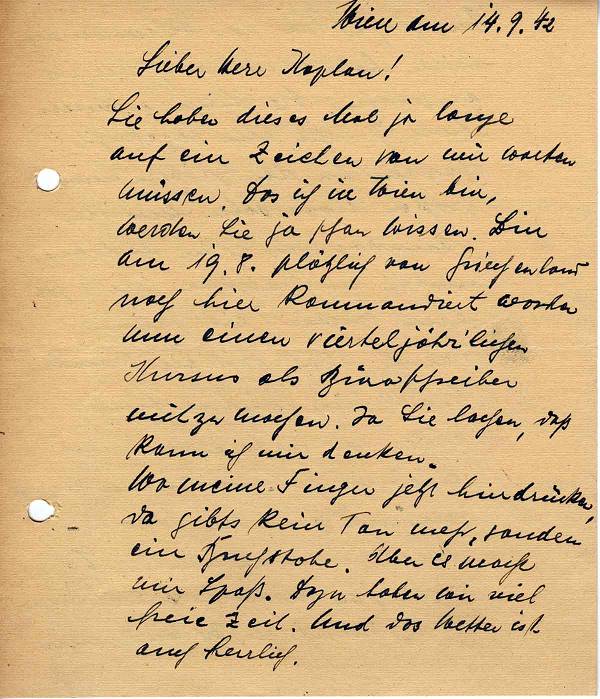 Wien am 14.9.42
Lieber Herr Kaplan!
Sie haben dieses Mal ja lange
auf ein Zeichen von mir warten
müssen. Das ich in Wien bin,
werden Sie ja schon wissen. Bin
am 19.8. plötzlich von Griechenland
nach hier kommandiert worden
um einen vierteljährlichen
Kursus als Büroschreiber
mitzumachen. Ja Sie lachen, daß
kann ich mir denken.
Wo meine Finger jetzt hindrücken,
da gibts kein Ton mehr, sondern
ein Buchstabe. Aber es macht
mir Spaß. Dazu haben wir viel
freie Zeit. Und das Wetter ist
auch herrlich.